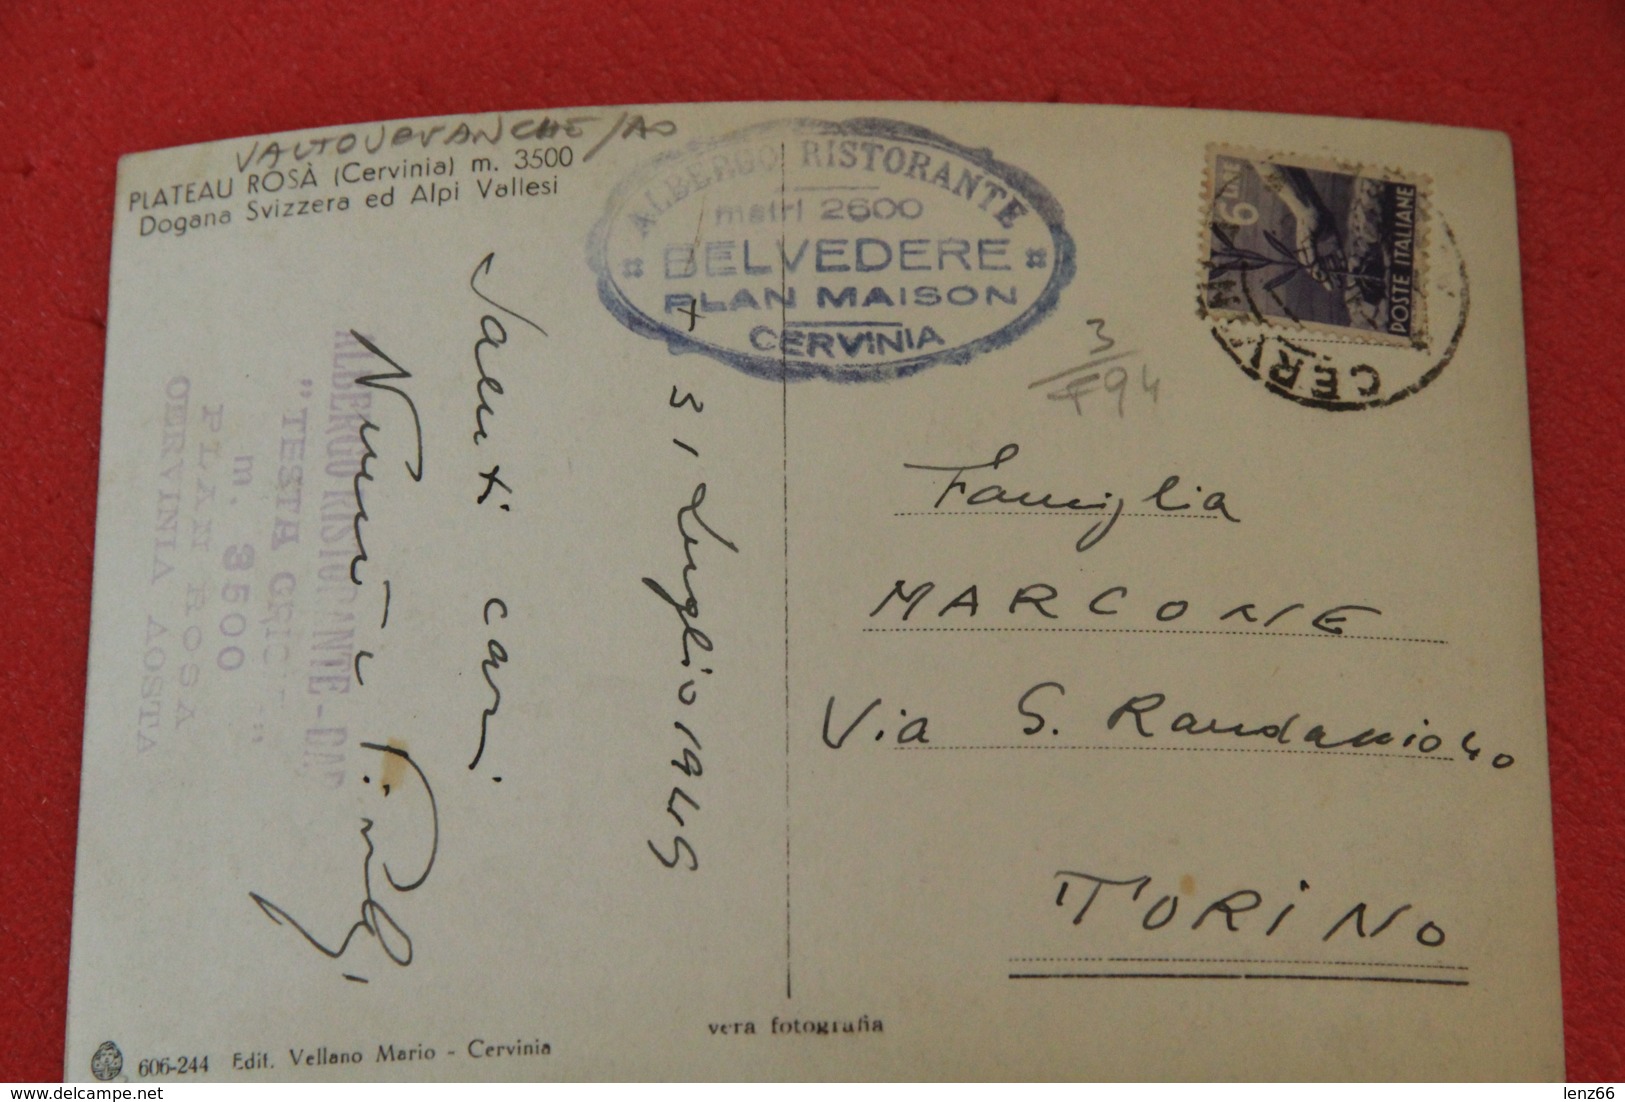 VALTOURNANCHE/AO
PLATEAU ROSÀ (Cervinia) m. 3500
Dogana Svizzera ed Alpi Vallesi
ALBERGO RISTORANTE
metri 2600
BELVEDERE
PLAN MAISON
CERVINIA
6 LIRE
POSTE ITALIANE
CERVIN
3/494
31 Luglio 1949
Saluti cari
ALBERGO RISTORANTE-BAR
"TESTA GRIGIA"
m. 3500
PLAN ROSA
CERVINIA AOSTA
Famiglia
MARCONE
Via S. Randaccio 40
TORINO
vera fotografia
606-244 Edit. Vellano Mario - Cervinia
delcampe.net
lenz66